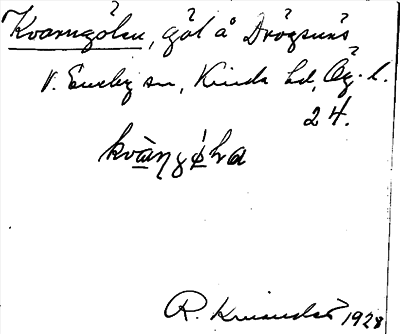 Kvarngölen, göl å Drögsnäs
V. Eneby sn, Kinda hd, Ög. l.
24.
kvàrŋgǿlα
R. 1928